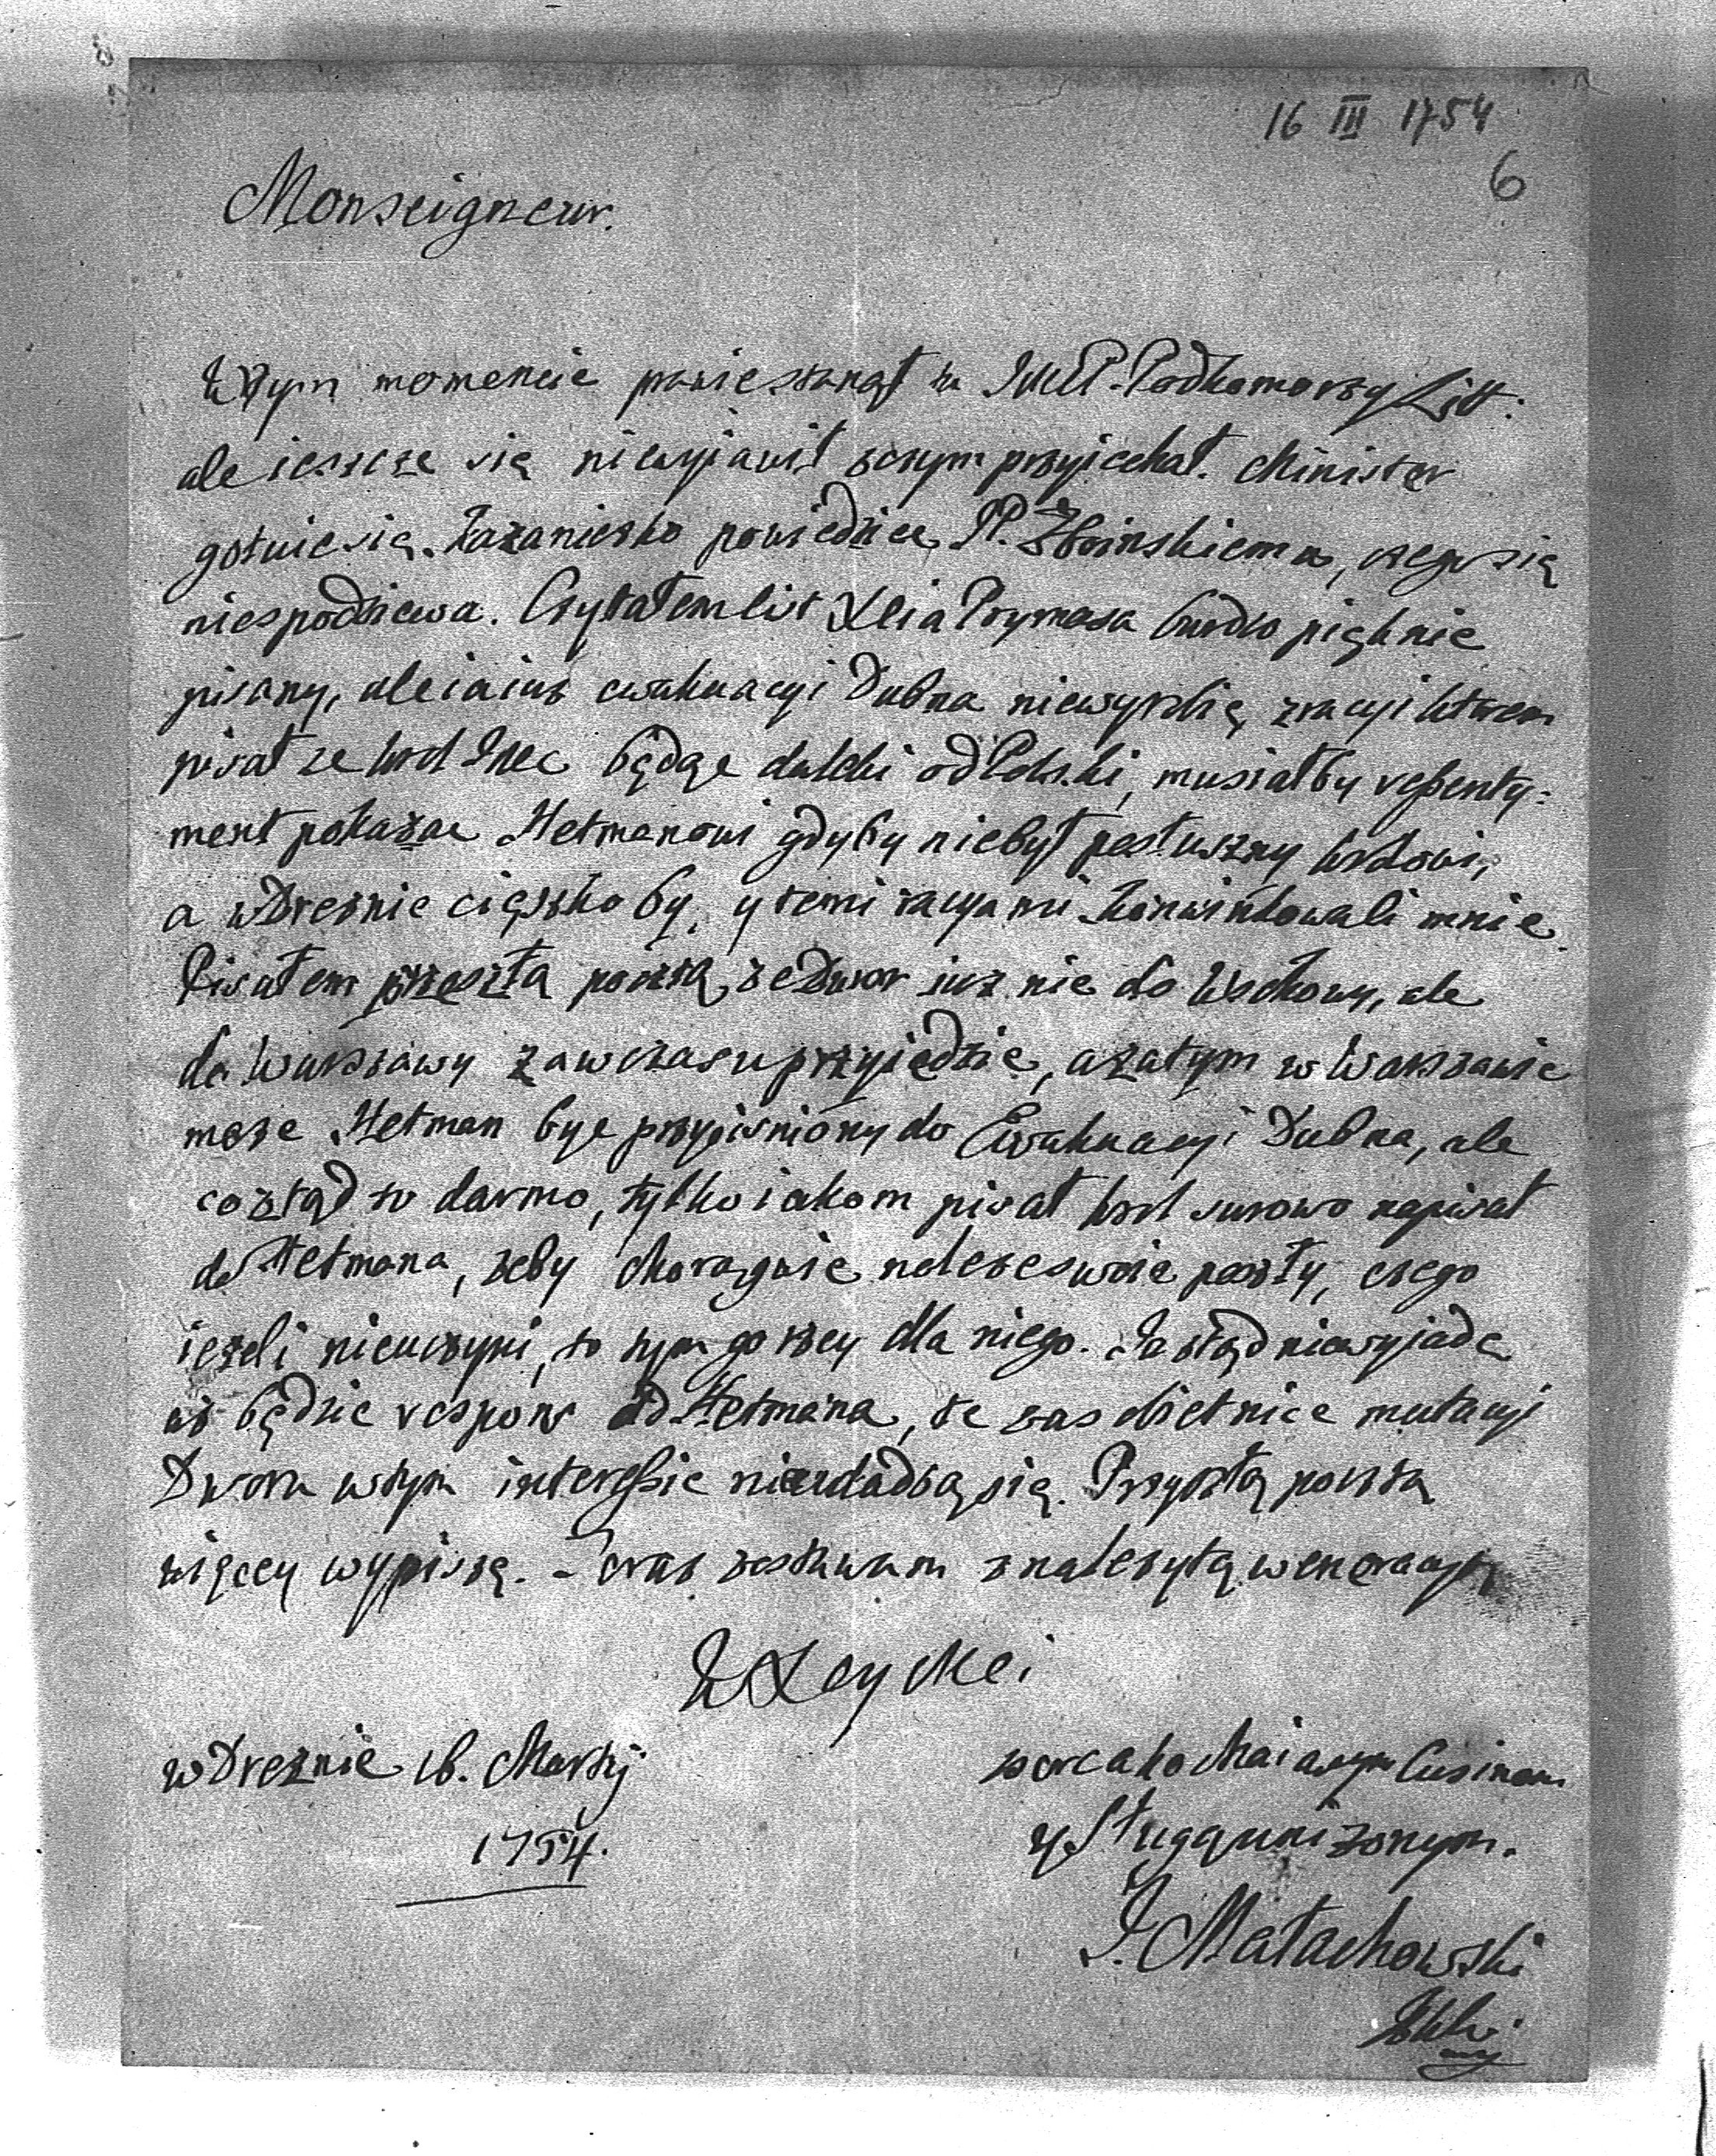 16 III 1754
6
Monseigneur.
W tym momencie prawie stanął tu JMP. Podkomorzy Litt.
ale ieszcze się niewyiawił z czym przyiechał. Minister
gotuie się kazanieczko powiedziec P. Zboinskiemu, czego się
niespodziewa. Czytałem list Xcia Prymasa bardzo pięknie
pisany, ale ia iuż ewakuacyi Dubna niewyrobię, z racyi ktorem
pisał ze Krol Jmc będąc daleki od Polski, musiałby resenty-
ment pokazac Hetmanowi gdyby niebył posłuszny Krolowi,
a w Dreznie cięszko by, y temi racyami konwinkowali mnie.
Pisałem przeszłą pocztą, ze Dwor iuz nie do Wschowy, ale
do Warszawy zawczasu przyiedzie, a zatym w Warszawie
moze Hetman byc przyciśniony do Ewakuacyi Dubna, ale
co ztąd to darmo, tylko iakom pisał Krol surowo napisał
do Hetmana, zeby chorągwie na lezes woie poszły, czego
iezeli nieuczyni, to tym gorzey dla niego. Ja ztąd niewyiadę
aż będzie respons od Hetmana, te zas obietnice mutacyi
Dworu w tym interessie nieudadzą się. Przyszłą pocztą
więcey wypiszę. – Teraz zostawam z nalezytą weneracyą
W X cy Mci
w Dreznie 16. Marty
1754.
szerca kochaiacym Cusinem
y Sługą unizonym.
J. Małachowski